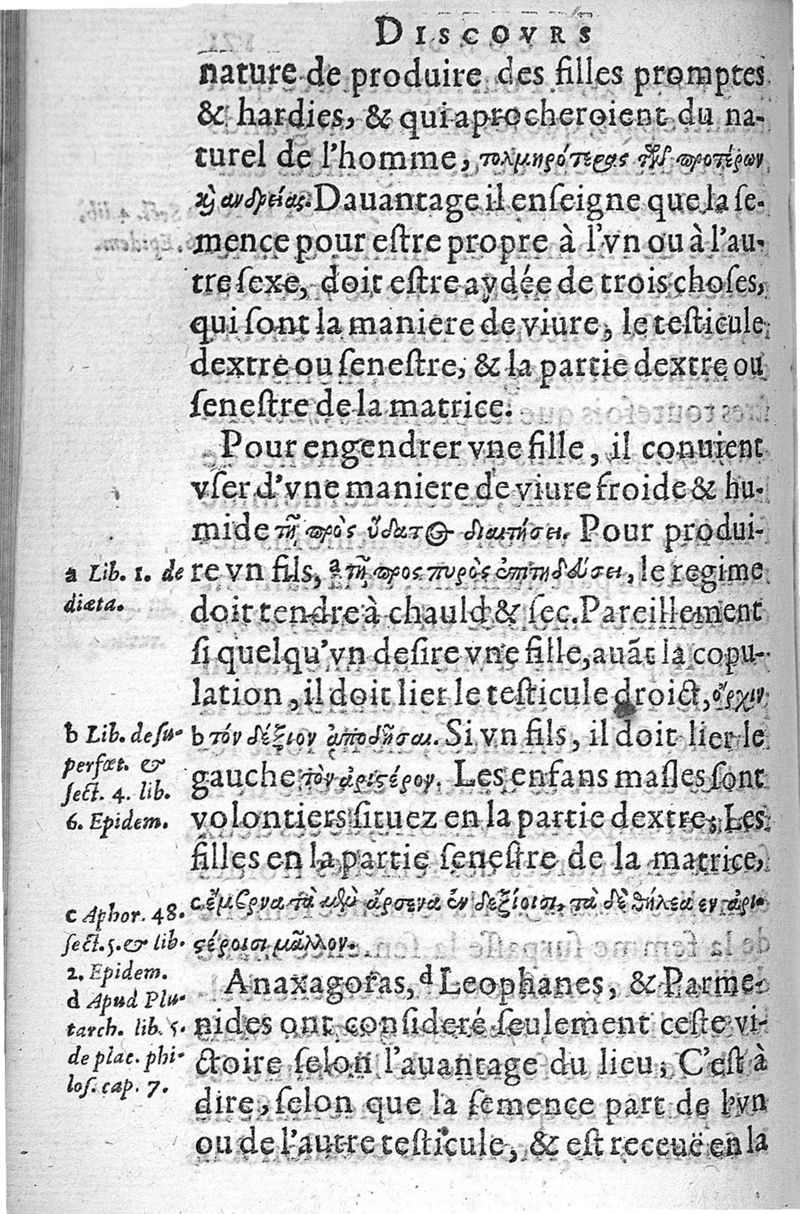 DISCOVRS
nature de produire des filles promptes
& hardies, & qui aprocheroient du na-
turel de l'homme, τολμηρότερας τῶν προτέρων
καὶ ανδρείας. Dauantage il enſeigne que la ſe-
mence pour eſtre propre à l'vn ou à l'au-
tre ſexe, doit eſtre aydée de trois choſes,
qui ſont la maniere de viure, le teſticule
dextre ou ſeneſtre, & la partie dextre ou
ſeneſtre de la matrice.
Pour engendrer vne fille, il conuient
vſer d'vne maniere de viure froide & hu-
mide τῇ πρὸς ὕδατος διαιτήσει. Pour produi-
a Lib. 1. de
diæta.
re vn fils, a τῇ προς πυρὸς ἐπιτηδεύσει, le regime
doit tendre à chauld & ſec. Pareillement
ſi quelqu'vn deſire vne fille, auãt la copu-
lation, il doit lier le teſticule droict, ὄρχιν
b Lib. de ſu-
perfœt. &
ſect. 4. lib.
6. Epidem.
b τόν δέξιον ἀποδῆσαι. Si vn fils, il doit lier le
gauche τὸν ἀριϛέρον. Les enfans maſles ſont
volontiers ſituez en la partie dextre, Les
filles en la partie ſeneſtre de la matrice,
c Aphor. 48.
ſect. 5. & lib.
2. Epidem.
c ἔμβρυα τὰ μὲν ἄρσενα ἐν δεξίοισι, τὰ δὲ θήλεα εν ἀρι-
ϛέροισι μᾶλλον.
d Apud Plu-
tarch. lib. 5.
de plac. phi-
loſ. cap. 7.
Anaxagoras, d Leophanes, & Parme-
nides ont conſideré ſeulement ceſte vi-
ctoire ſelon l'auantage du lieu, C'eſt à
dire, ſelon que la ſemence part de l'vn
ou de l'autre teſticule, & eſt receuë en la